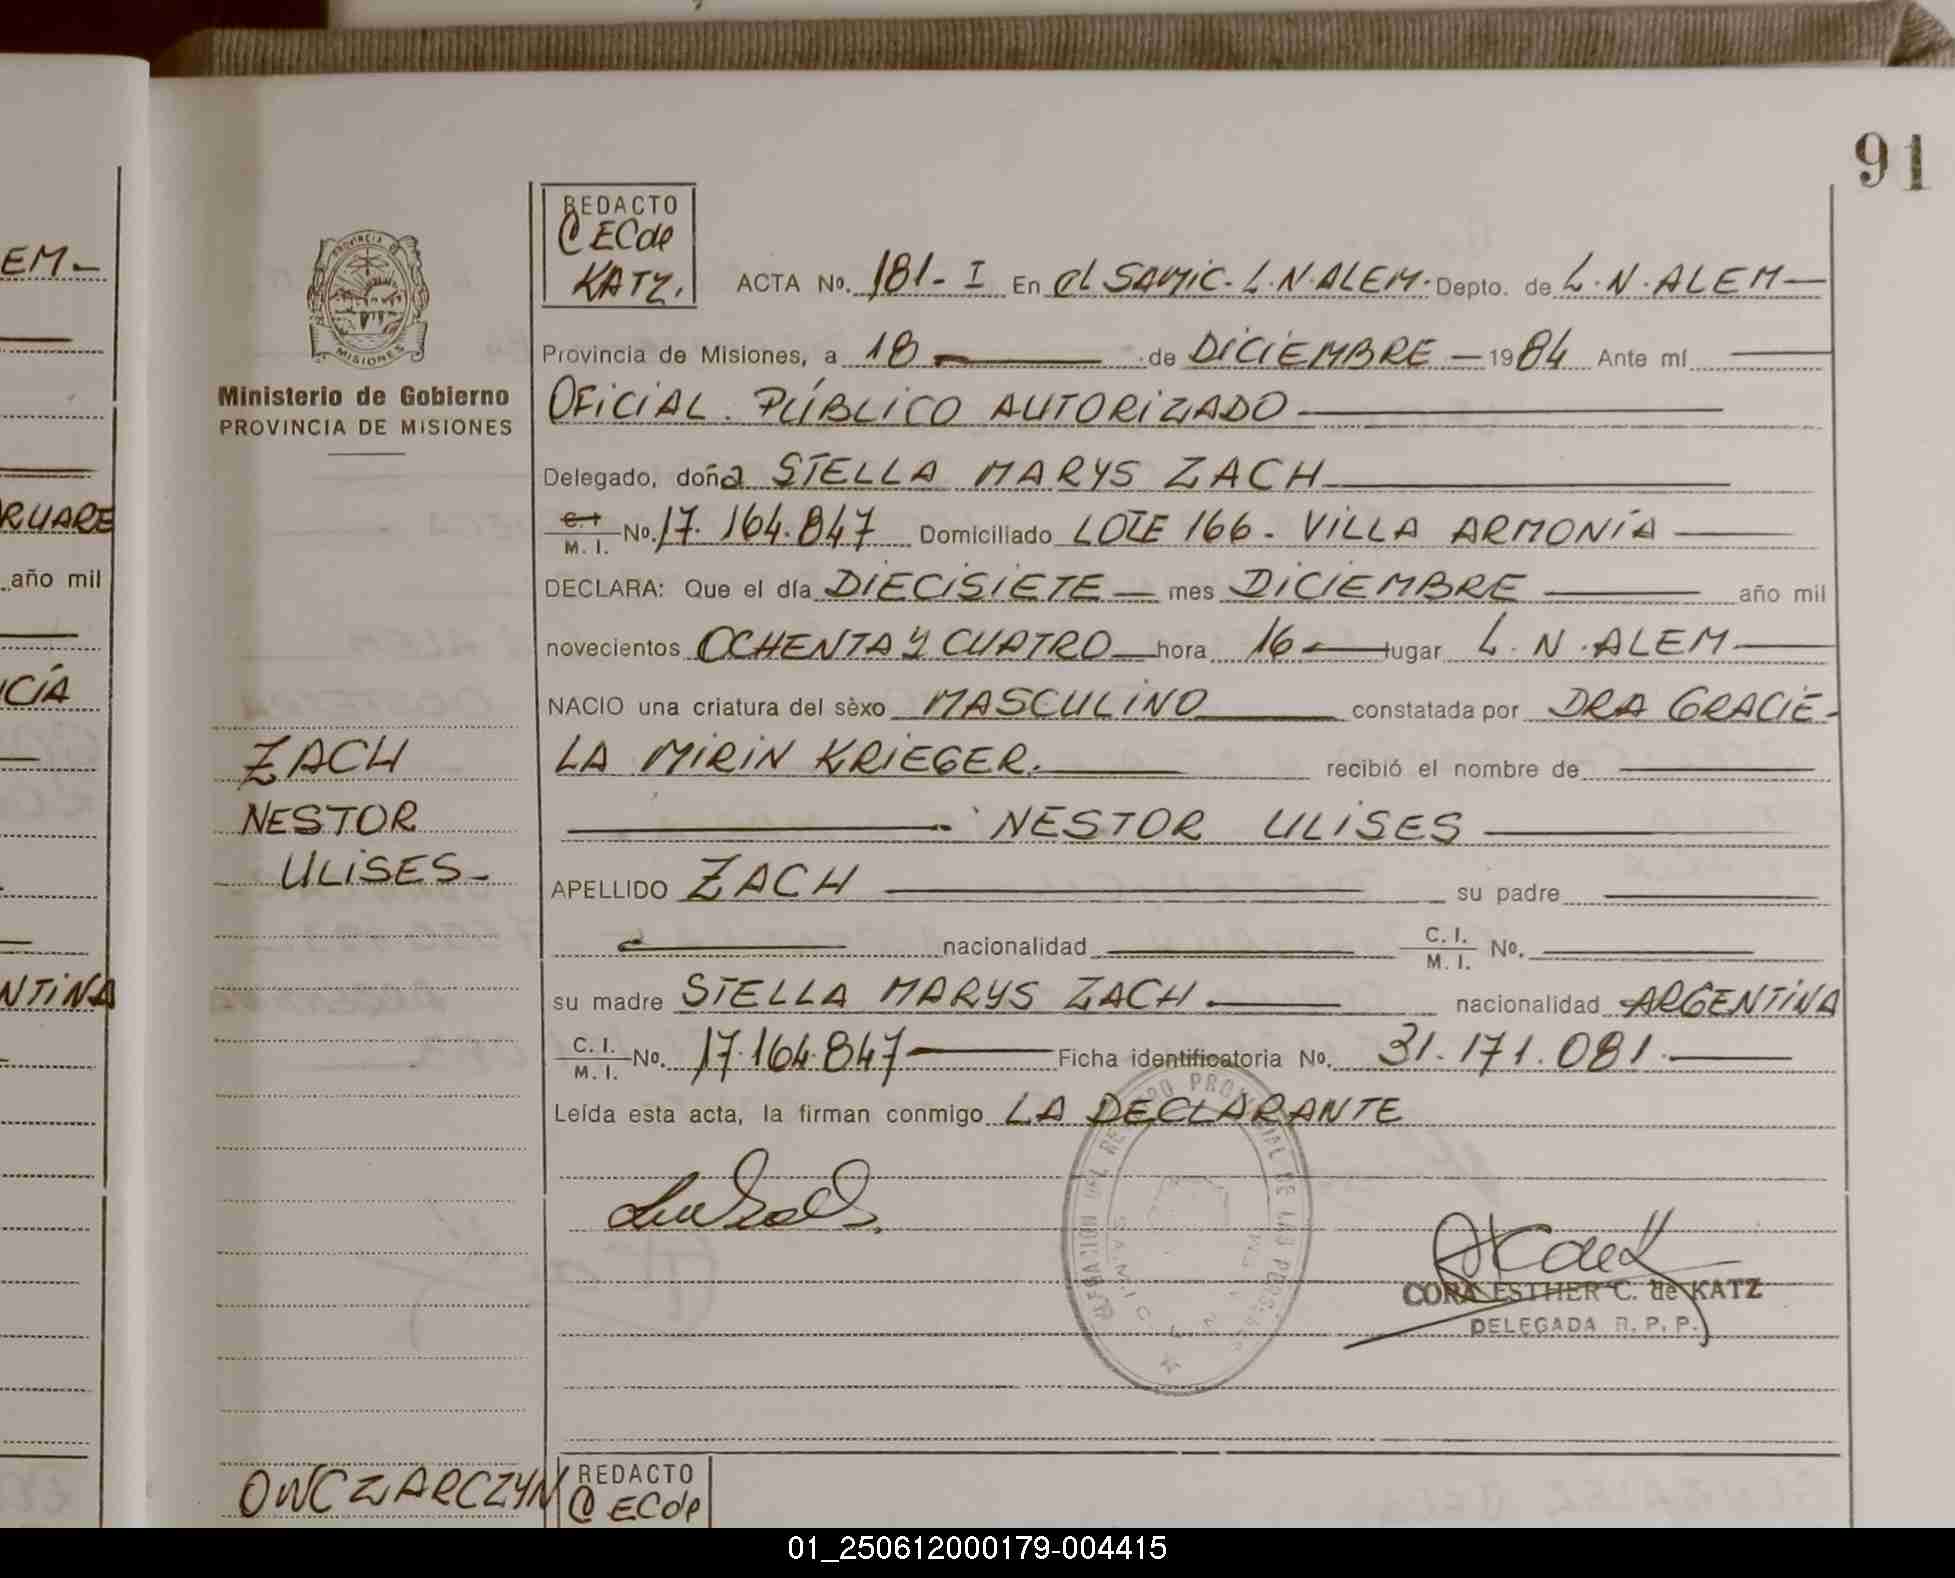 91
EM-
RUARE
año mil
CÍA
NTINA
PROVINCIA DE
MISIONES
Ministerio de Gobierno
PROVINCIA DE MISIONES
REDACTO
C ECde
KATZ.
ACTA No. 181- I En el SAMIC. L.N.ALEM. Depto. de L.N.ALEM
Provincia de Misiones, a 18 de DICIEMBRE 1984 Ante mí
OFICIAL PÚBLICO AUTORIZADO
Delegado, doña STELLA MARYS ZACH
C.I. M. I. No. 17.164.847 Domiciliado LOTE 166 - VILLA ARMONÍA
DECLARA: Que el día DIECISIETE mes DICIEMBRE año mil
novecientos OCHENTA Y CUATRO hora 16 lugar L.N.ALEM
NACIO una criatura del sèxo MASCULINO constatada por DRA GRACIE-
LA MIRIN KRIEGER. recibió el nombre de
NESTOR ULISES
APELLIDO ZACH su padre
nacionalidad C. I. M. I. No.
su madre STELLA MARYS ZACH nacionalidad ARGENTINA
C. I. M. I. No. 17.164.847 Ficha identificatoria No. 31.171.081.
Leída esta acta, la firman conmigo LA DECLARANTE
ZACH
NESTOR
ULISES-
CORA ESTHER C. de KATZ
DELEGADA R. P. P.
OWCZARCZYN
REDACTO
C ECde
01_250612000179-004415